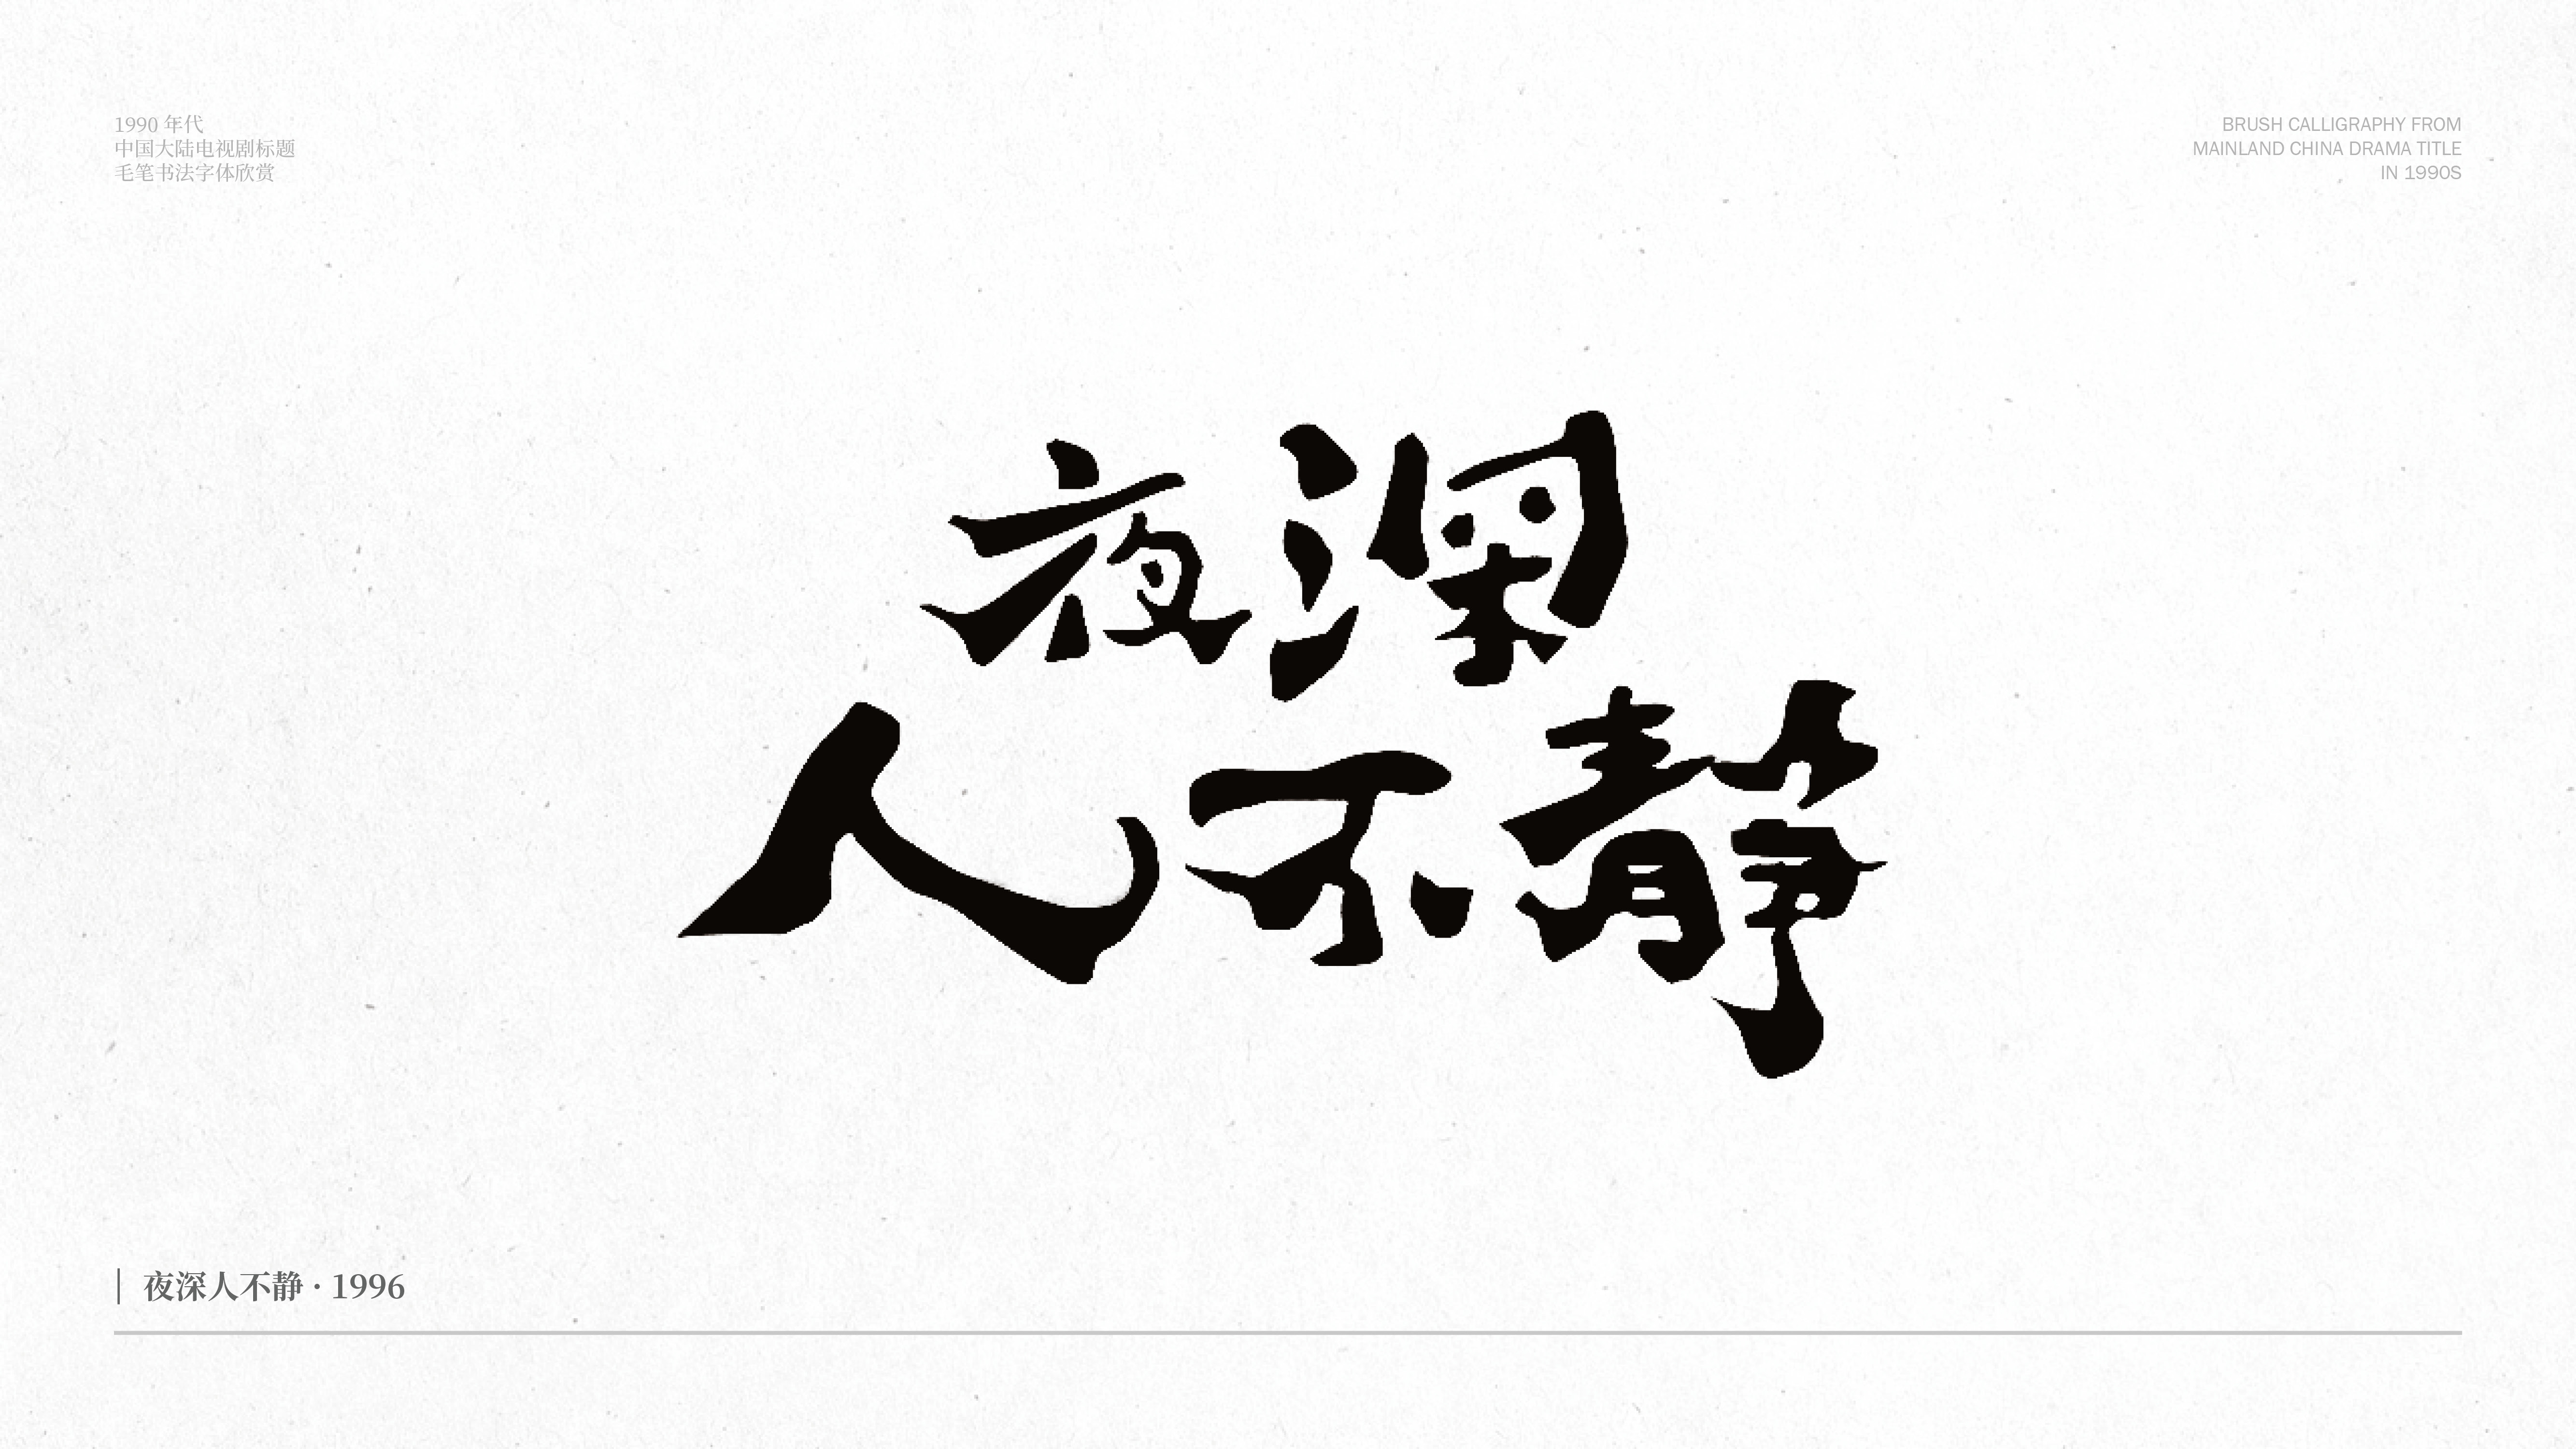 1990 年代
中国大陆电视剧标题
毛笔书法字体欣赏
BRUSH CALLIGRAPHY FROM
MAINLAND CHINA DRAMA TITLE
IN 1990S
夜深
人不静
夜深人不静 · 1996